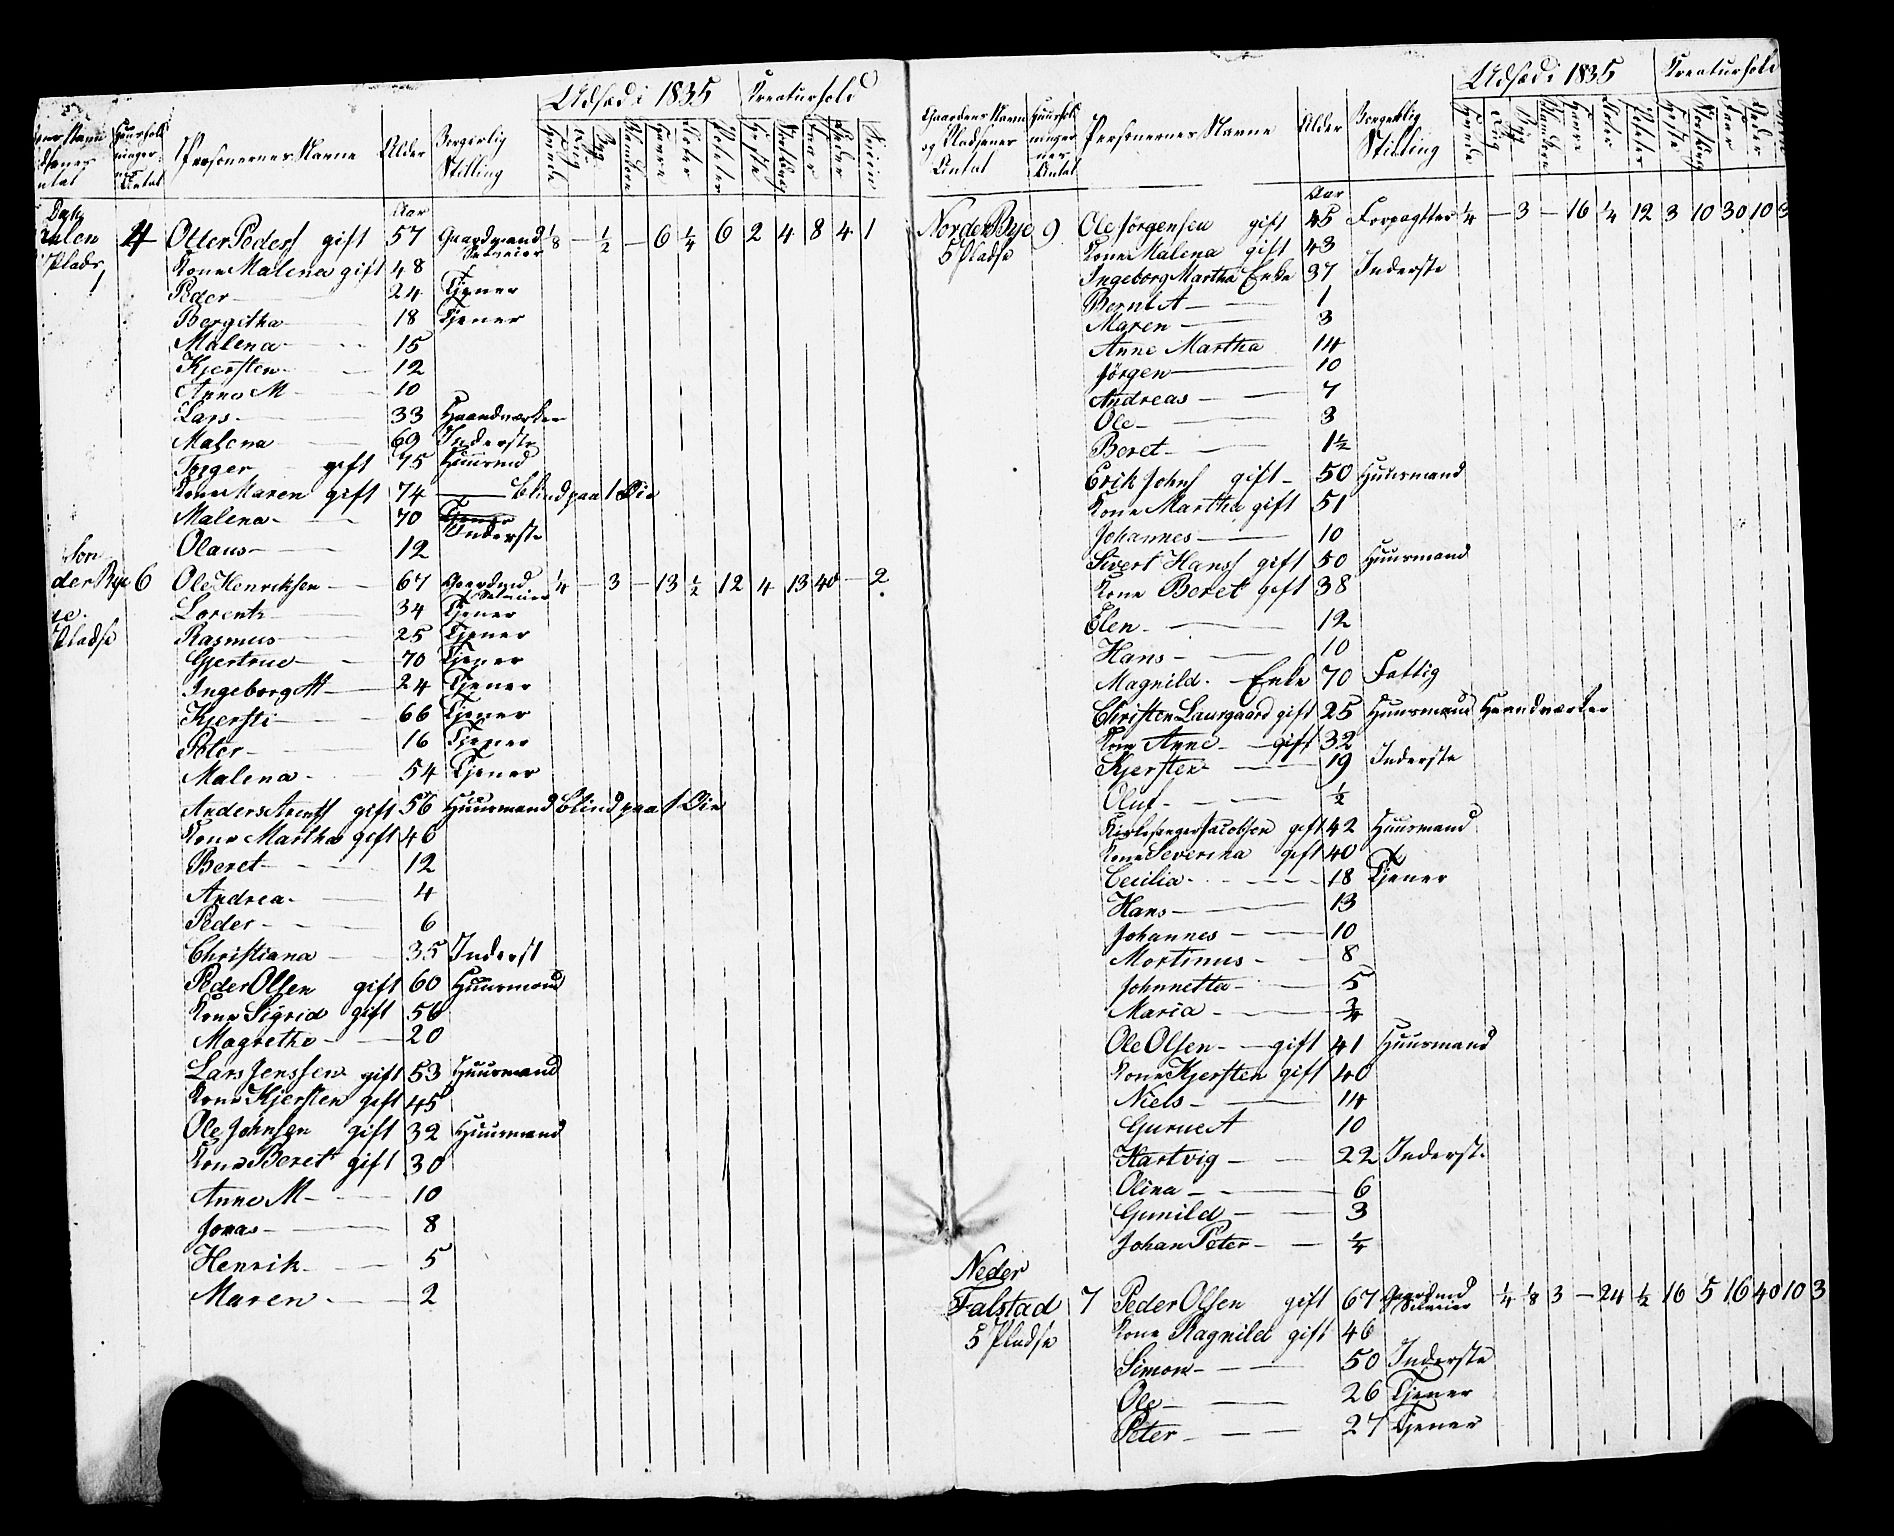 Udsæd i 1835 Kreaturhold
Personernes Navne Alder Borgerlig Stilling Hvede Rug Byg Blandkorn Havre Erter Poteter Heste Storfæe Faar Geder Sviin
Aar
4 Oller Pederss gift 57 Gaardmand Selveier 1/8 — 1/2 — 6 1/4 6 2 4 8 4 1
Plads Kone Malena gift 48
Peder 24 Tjener
Bergitha 18 Tjener
Malena 15
Kjersten 12
Anne M 10
Lars 33 Haandværker
Malena 69 Inderste
gift 75 Huusmd
Kone Maren gift 74 — blind paa 1 Øie
Malena 70 Tjener Inderste
Olaus 12
Sønder Bye 6 Ole Henriksen 67 Gaardmd Selveier 1/4 — 3 — 13 1/2 12 4 13 40 — 2
Lorents 34 Tjener
Pladse Rasmus 25 Tjener
Gjertrue 70 Tjener
Ingeborg M 24 Tjener
Kjersti 66 Tjener
Peter 16 Tjener
Malena 54 Tjener
Anders Arentss gift 56 Huusmand blind paa 1 Øie
Kone Martha gift 46
Beret 12
Andrea 4
Peder 6
Christiana 35 Inderst
Peder Olsen gift 60 Huusmand
Kone Sigrid gift 56
Magrethe 20
Lars Jenssen gift 53 Huusmand
Kone Kjersten gift 45
Ole Johnsen gift 32 Huusmand
Kone Beret gift 30
Anne M 10
Jonas 8
Henrik 5
Maren 2
Udsæd i 1835 Kreaturhold
Gaardens Navne og Pladsenes Antal Huusholdningernes Antal Personernes Navne Alder Borgerlig Stilling Hvede Rug Byg Blandkorn Havre Erter Poteter Heste Storfæe Faar Geder
Aar
Norder Bye 9 Ole Jørgensen gift 45 Forpagter 1/4 — 3 — 16 1/4 12 3 10 30 10 3
5 Pladse Kone Malena gift 43
Ingeborg Martha Enke 37 Inderste
Bernt A 1
Maren 3
Anne Martha 14
Jørgen 10
Andreas 7
Ole 3
Beret 1 1/2
Erik Johnss gift 50 Huusmand
Kone Martha gift 51
Johannes 10
Sivert Hanss gift 50 Huusmand
Kone Beret gift 38
Elen 12
Hans 10
Magnild Enke 70 Fattig
Christen Laurgaard gift 25 Huusmand Haandværker
Kone Anne gift 32
Kjersten 19 Inderste
Oluf 1/2
Kirkesanger Jacobsen gift 42 Huusmand
Kone Severina gift 40
Cecilia 18 Tjener
Hans 13
Johannes 10
Mortinus 8
Johnnetta 5
Maria 3/4
Ole Olsen gift 41 Huusmand
Kone Kjersten gift 40
Niels 14
Gurue A 10
Hartvig 22 Inderste
Olina 6
Gunild 3
Johan Peter 1/4
Neder
Falstad 7 Peder Olsen gift 67 Gaardmd Selveier 1/4 1/8 3 — 24 1/2 16 5 16 40 10 3
5 Pladse Kone Ragnild gift 46
Simon 50 Inderste
Ole 26 Tjener
Peter 27 Tjener